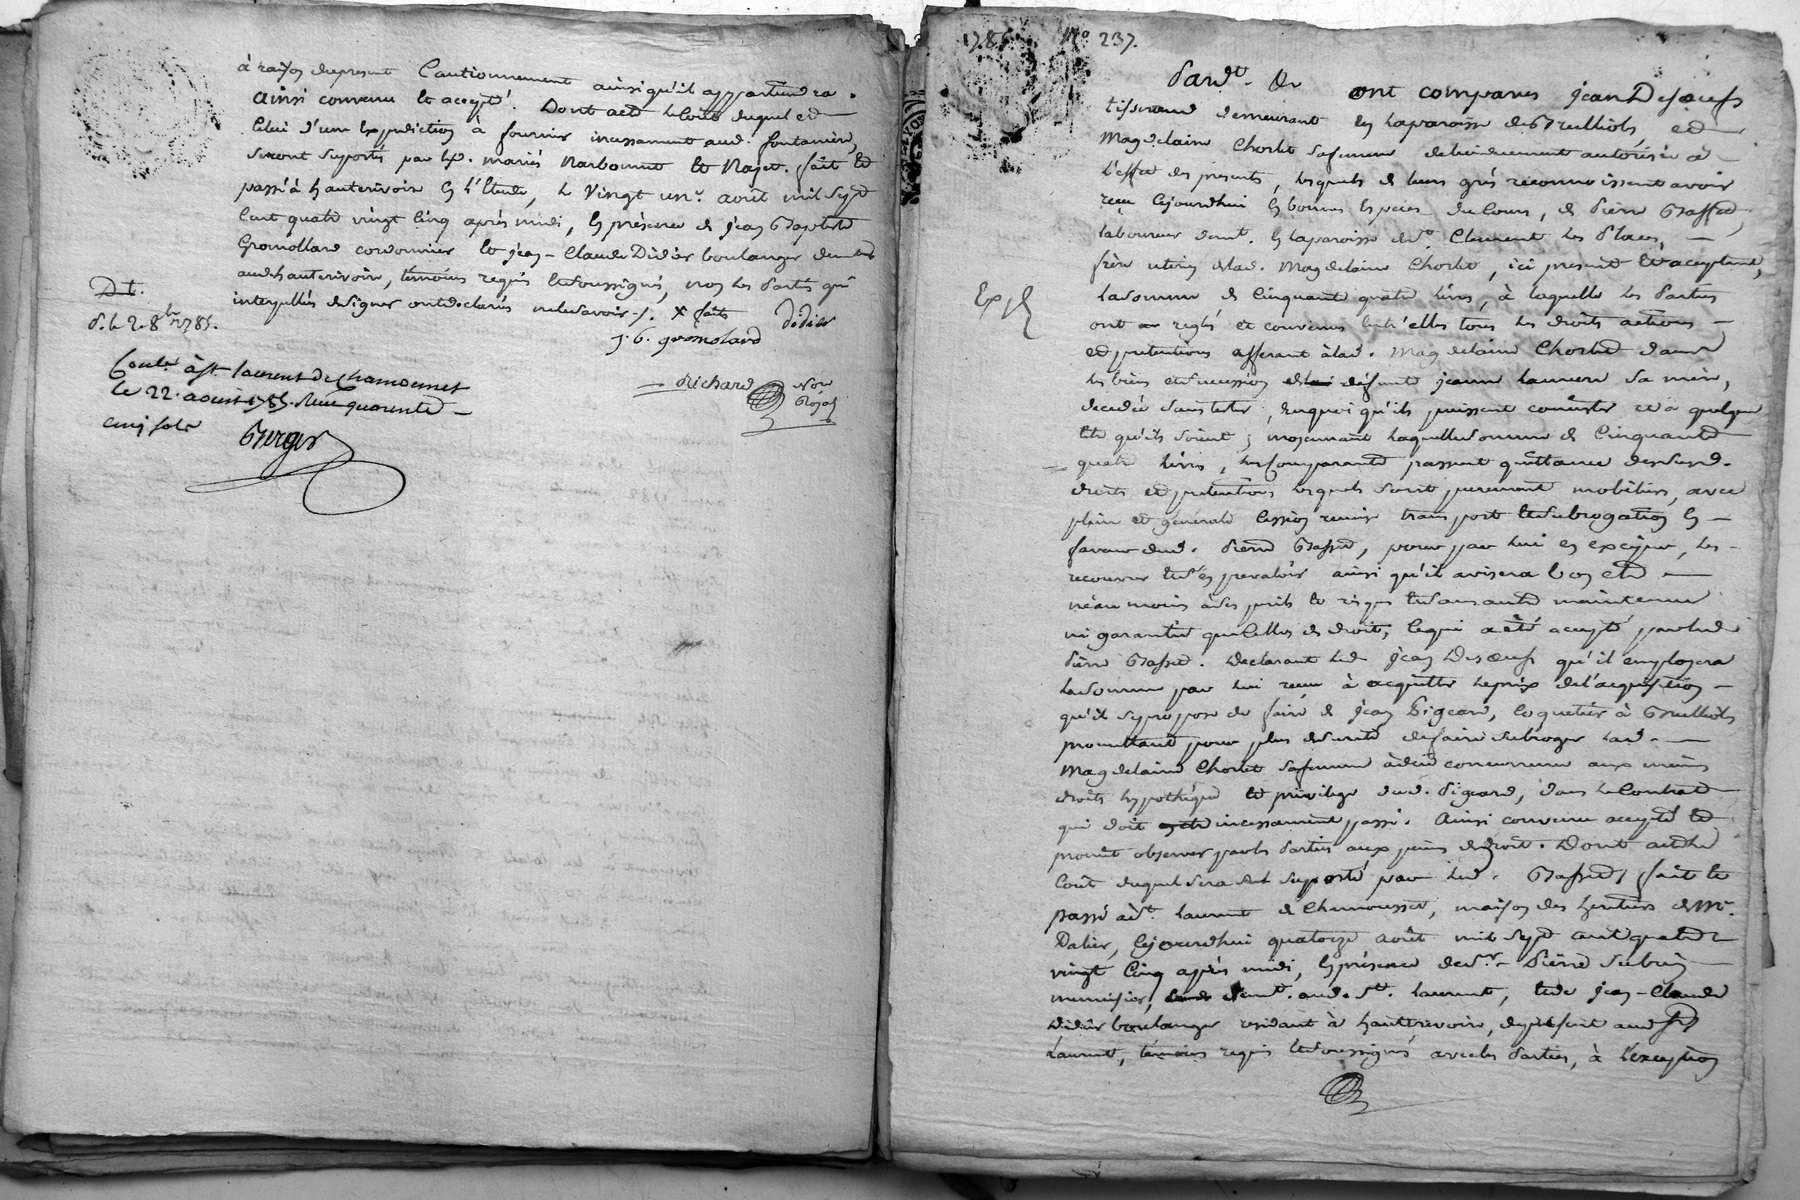 à raison du present Cautionnement ainsi qu'il appartiendra.
Ainsi convenu et accepté. Dont acte le Coût duquel et
Celui d'une Expedition à fournir incessament aud. fontanier,
Seront Suportés par lesd. mariés Narbonnet et Najet. fait et
passé à hauterivoir En l'Etude, le Vingt un.e août mil Sept
Cent quatre vingt Cinq après midi, En présence de jean Baptiste
Gromollard cordonnier et jean-Claude Didier boulanger demt.
aud. hauterivoir, témoins requis et Soussignés, non les parties qui
interpellés de Signer ont declarés ne le Savoir ./. X faits
Didier
j. b. gromolard
Richard Nore Royal
Dt.
d. le 2. 8bre 1785.
Conle. à St. laurent De Chamousset
le 22. aoust 1785. Reçu quarente
cinq sols Berger
1785. No 237.
Pardt. &c ont comparus jean Desœufs
tisserand demeurant En la paroisse de Brulliols, et
Magdelaine Chorlet Sa femme deheuement autorisée à
L'effet des presentes, lesquels de leurs grés reconnoissent avoir
reçu Cejourdhui En bonnes Espèces du Cours, de Pierre Basset,
laboureur demt. En la paroisse de St. Clement les Places,
frère uterin de lad. Magdelaine Chorlet, ici present et acceptant,
Exp.
la Somme de Cinquante quatre livres, à laquelle les Parties
ont reglés et convenus Entr'elles tous les droits actions
et pretentions afferant à lad. Magdelaine Chorlet dans
les biens et Succession de défunte jeanne Laurent Sa mère,
decedée Sans tester, En quoi qu'ils puissent consister et à quelque
titre qu'ils Soient; moyennant laquelle Somme de Cinquante
quatre livres, les Comparants passent quittance desSusd.
droits et pretentions lesquels Sont purement mobiliers, avec
pleine et générale Cession remise transport et Subrogation En
faveur dud. Pierre Basset, pour par lui en exciper, les
recouvrer et S'en prevaloir ainsi qu'il avisera bon etre
néanmoins à Ses perils et risques et Sans autre maintenue
ni garantie que Celles de droit, Ce qui a été accepté par led.
Pierre Basset. Declarant led. jean Desœufs qu'il employera
la Somme par lui reçue à acquitter le prix de l'acquisition
qu'il Se propose de faire de jean Pigeard, coquetier à Brulliols,
promettant pour plus de Sureté de faire Subroger lad.
Magdelaine Chorlet Sa femme à due concurrence aux mêmes
droits hypothéque et privilege dud. Pigeard, dans le Contrat
qui doit incessament passé. Ainsi convenu accepté et
promit observer par les Parties aux peines de droit. Dont acte le
Coût duquel Sera Suporté par led. Basset, fait et
passé à St. Laurent de Chamousset, maison des heritiers de Mr.
Dalier, Cejourdhui quatorze août mil Sept cent quatre
vingt Cinq après midi, En présence de Sr. Pierre Subrin
menuisier, demt. aud. St. Laurent, et de jean-Claude
Didier boulanger residant à hauterivoir, de présent aud. St.
Laurent, témoins requis et Soussignés avec les Parties, à l'exception